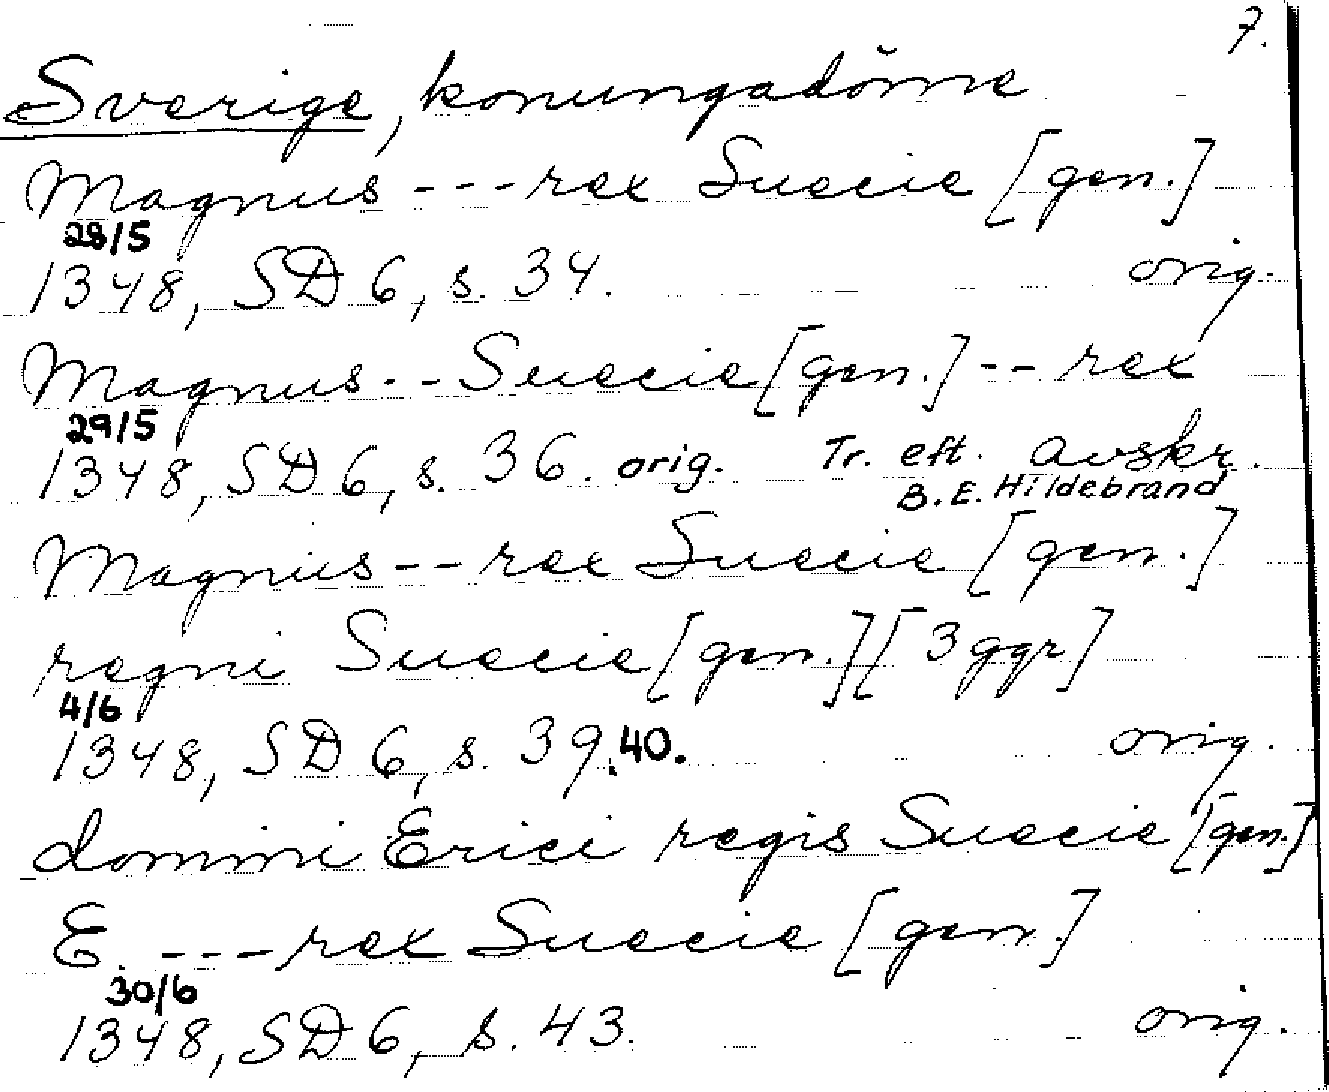 7.
Sverige, konungadöme
Magnus --- rex Suecie [gen.]
28/5
1348, SD 6, s. 34. orig.
Magnus -- Suecie [gen.] -- rex
29/5
1348, SD 6, s. 36. orig. Tr. eft. avskr.
B. E. Hildebrand
Magnus -- rex Suecie [gen.]
regni Suecie [gen.] [3 ggr]
4/6
1348, SD 6, s. 39, 40. orig.
domini Erici regis Suecie [gen.]
E. --- rex Suecie [gen.]
30/6
1348, SD 6, s. 43. orig.